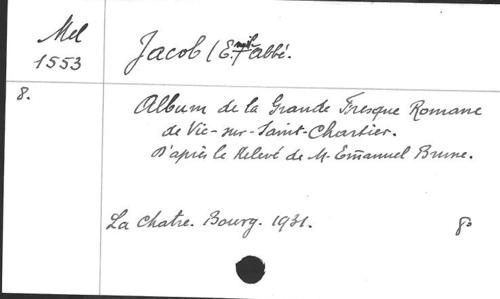 Mel
1553
Jacob (Emile abbé.
8.
Album de la Grande Fresque Romane
de Vic-sur-Saint-Chartier.
D'après le Relevé de M. Emmanuel Brune.
La Chatre. Bourg. 1931.
8o